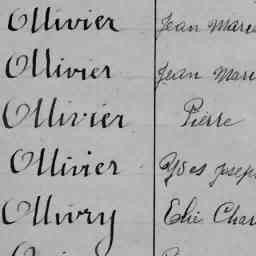 Ollivier Jean Marie
Ollivier Jean Mari
Ollivier Pierre
Ollivier Yves Joseph
Ollivry Elie Char